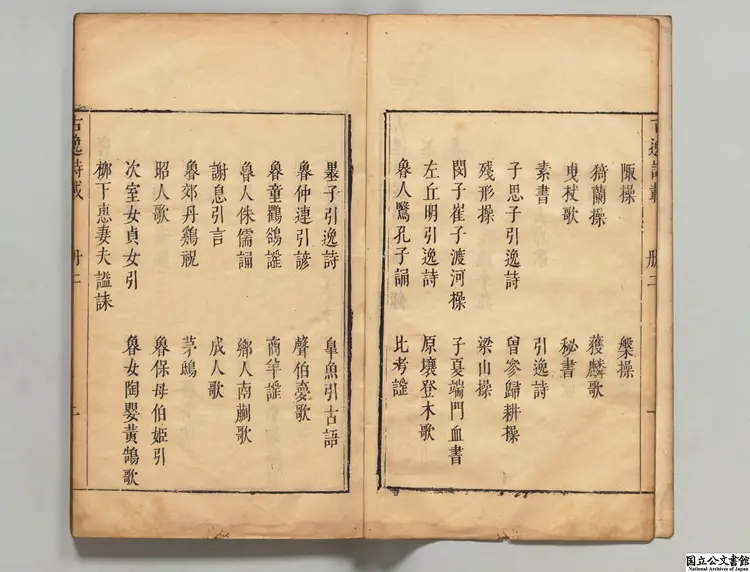 古逸詩載 冊二 一
陬操 槃操
猗蘭操 獲麟歌
曳杖歌 秘書
素書 引逸詩
子思子引逸詩 曾參歸耕操
殘形操 梁山操
閔子崔子渡河操 子夏端門血書
左丘明引逸詩 原壤登木歌
魯人鷖孔子誦 比考讖
墨子引逸詩 皐魚引古語
魯仲連引諺 聲伯夢歌
魯童鸜鵒謠 商羊謠
魯人侏儒誦 鄉人南蒯歌
謝息引言 成人歌
魯郊丹鷄祝 茅鴟
昭人歌 魯保母伯姬引
次室女貞女引 魯女陶嬰黃鵠歌
柳下惠妻夫謚誄
古逸詩載 冊二 一
国立公文書館
National Archives of Japan